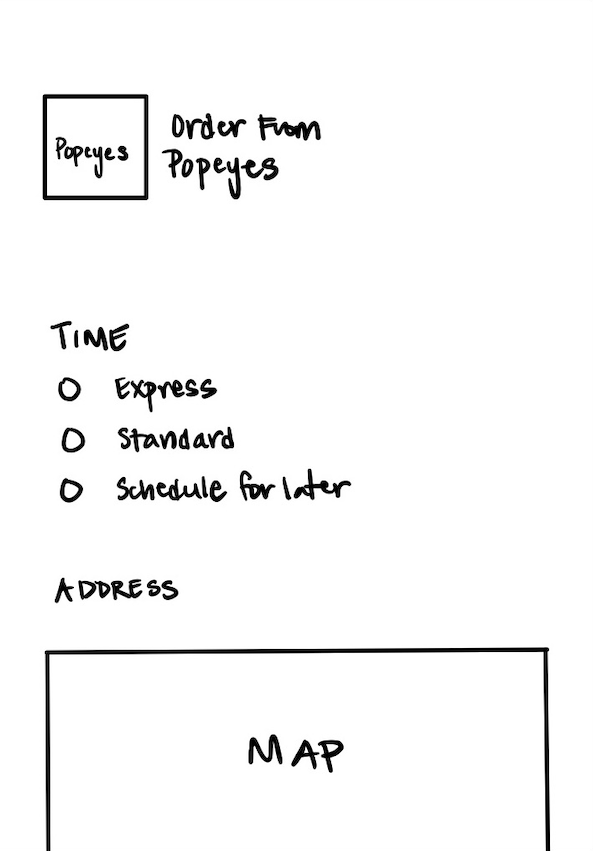 Popeyes
Order From
Popeyes
TIME
Express
Standard
Schedule for later
ADDRESS
MAP